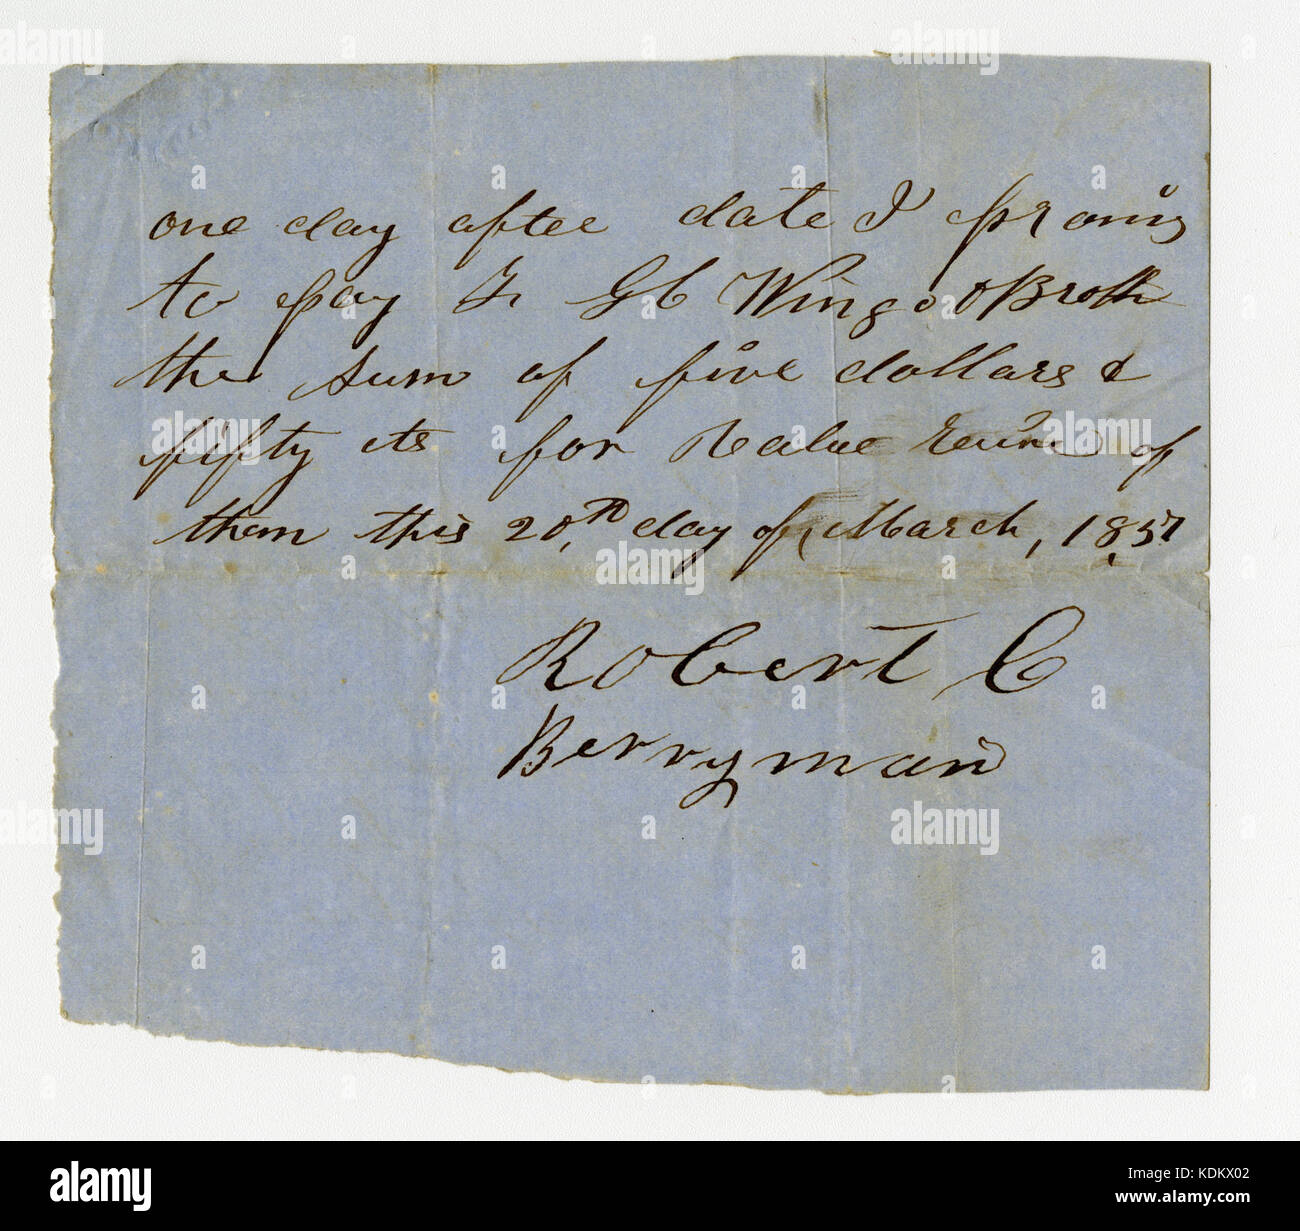 one day after date I promis
to pay F G C Wingo & Broth
the sum of five dollars &
fifty cts for Value of
them this 20th day of March, 1857
Robert C
Berryman
alamy
Image ID: KDKX02
www.alamy.com